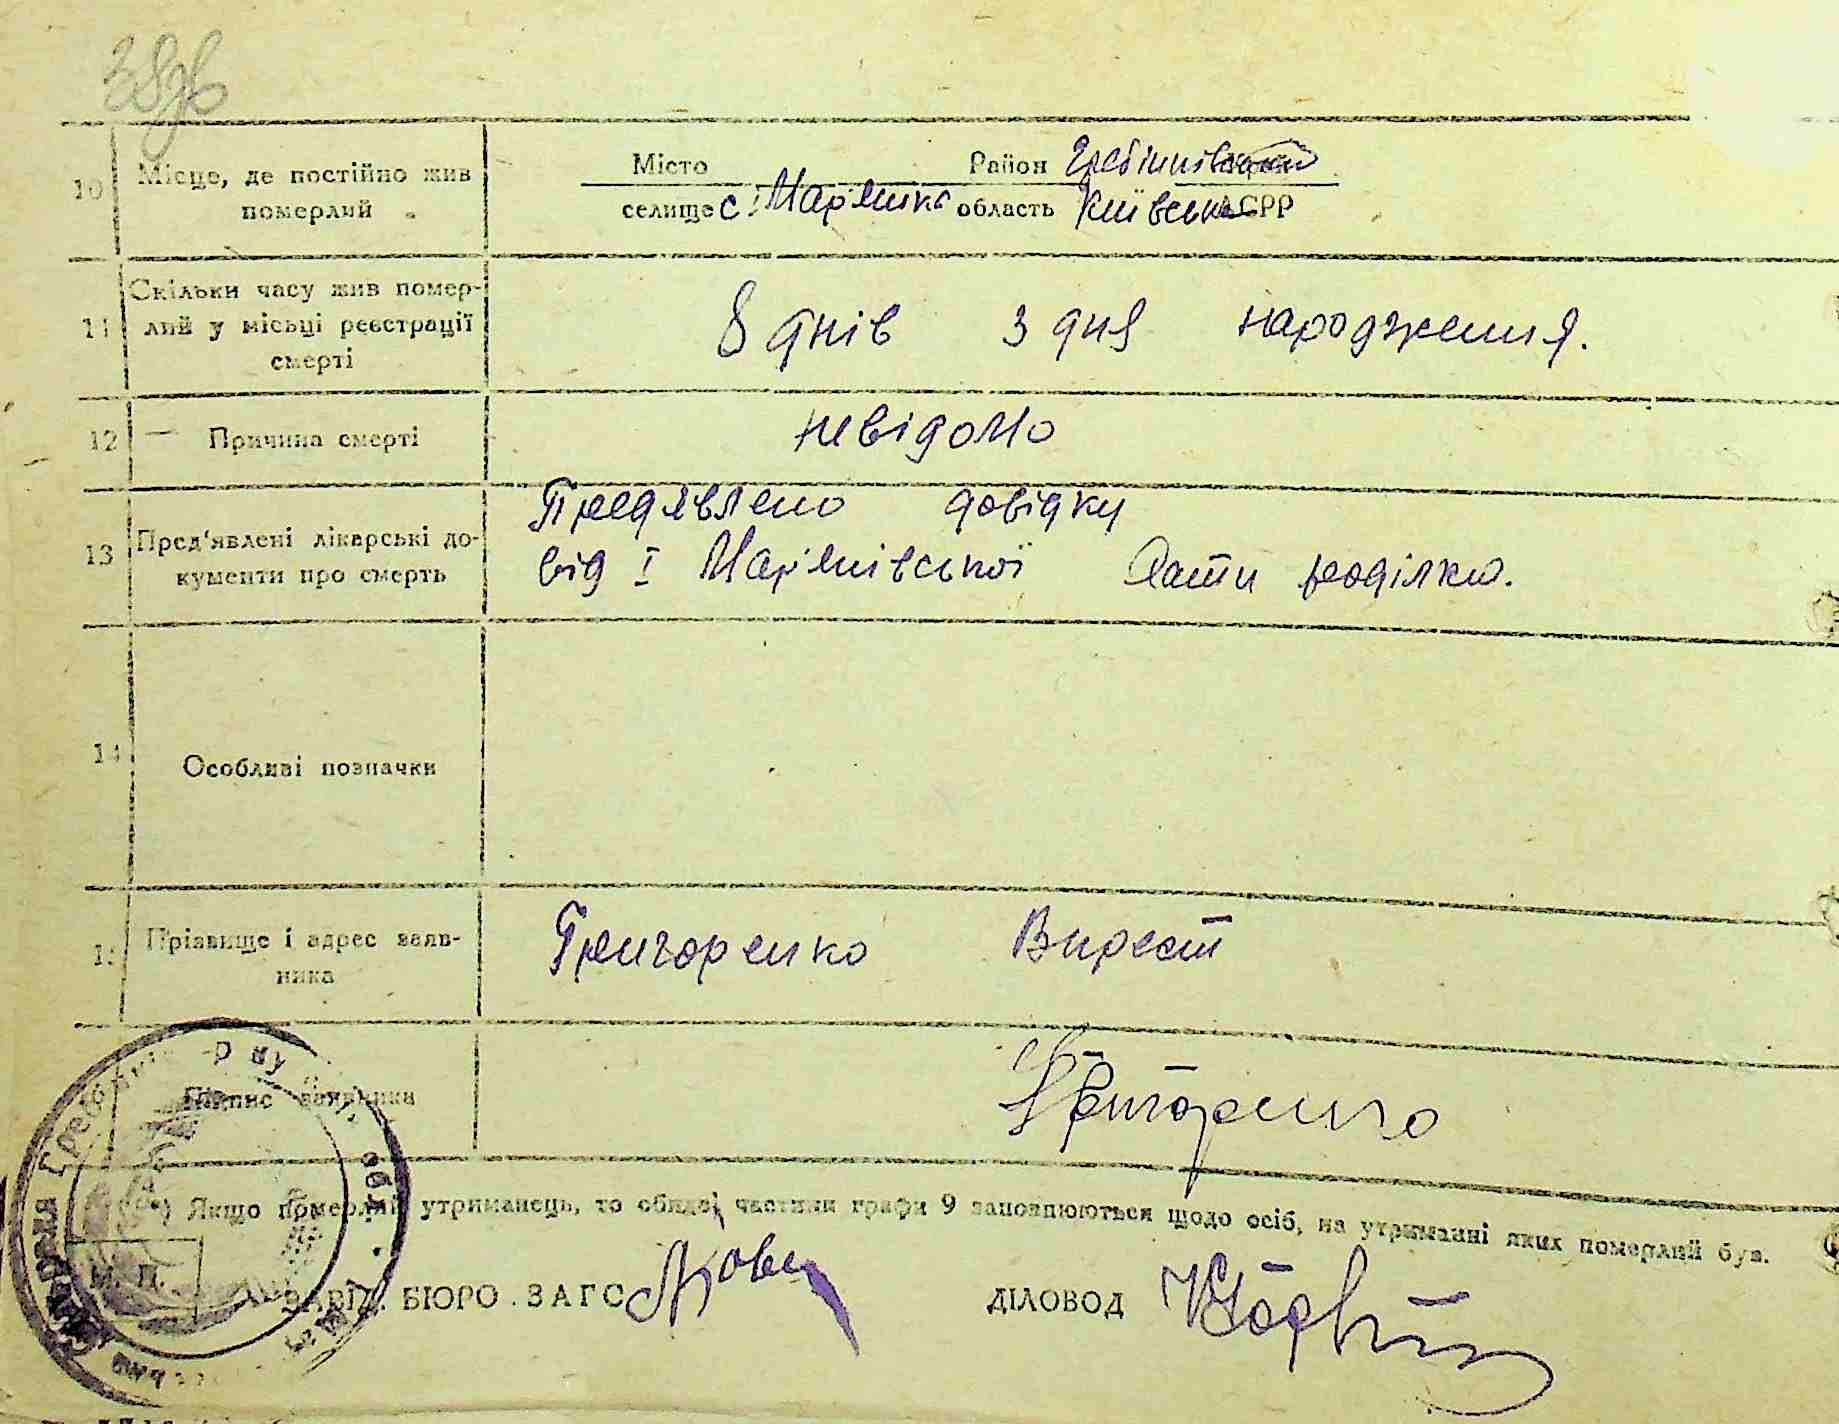 10 Місце, де постійно жив
померлий
Місто Район Гребінківський
селище с. Мар'янівка область Київська АСРР
11 Скільки часу жив помер-
лий у місьці реєстрації
смерті
8 днів з дня народження.
12 Причина смерті
невідомо
13 Пред'явлені лікарські до-
кументи про смерть
Предявлено довідку
від I Мар'янівської Хати роділки.
14 Особливі позначки
15 Прізвище і адрес заяв-
ника
Григоренко
Підпис заявника
Григоренко
*) Якщо померлий утриманець, то обидві частини графи 9 заповнюються щодо осіб, на утриманні яких померлий був.
М. П.
ЗАВІД. БЮРО ЗАГС
ДІЛОВОД